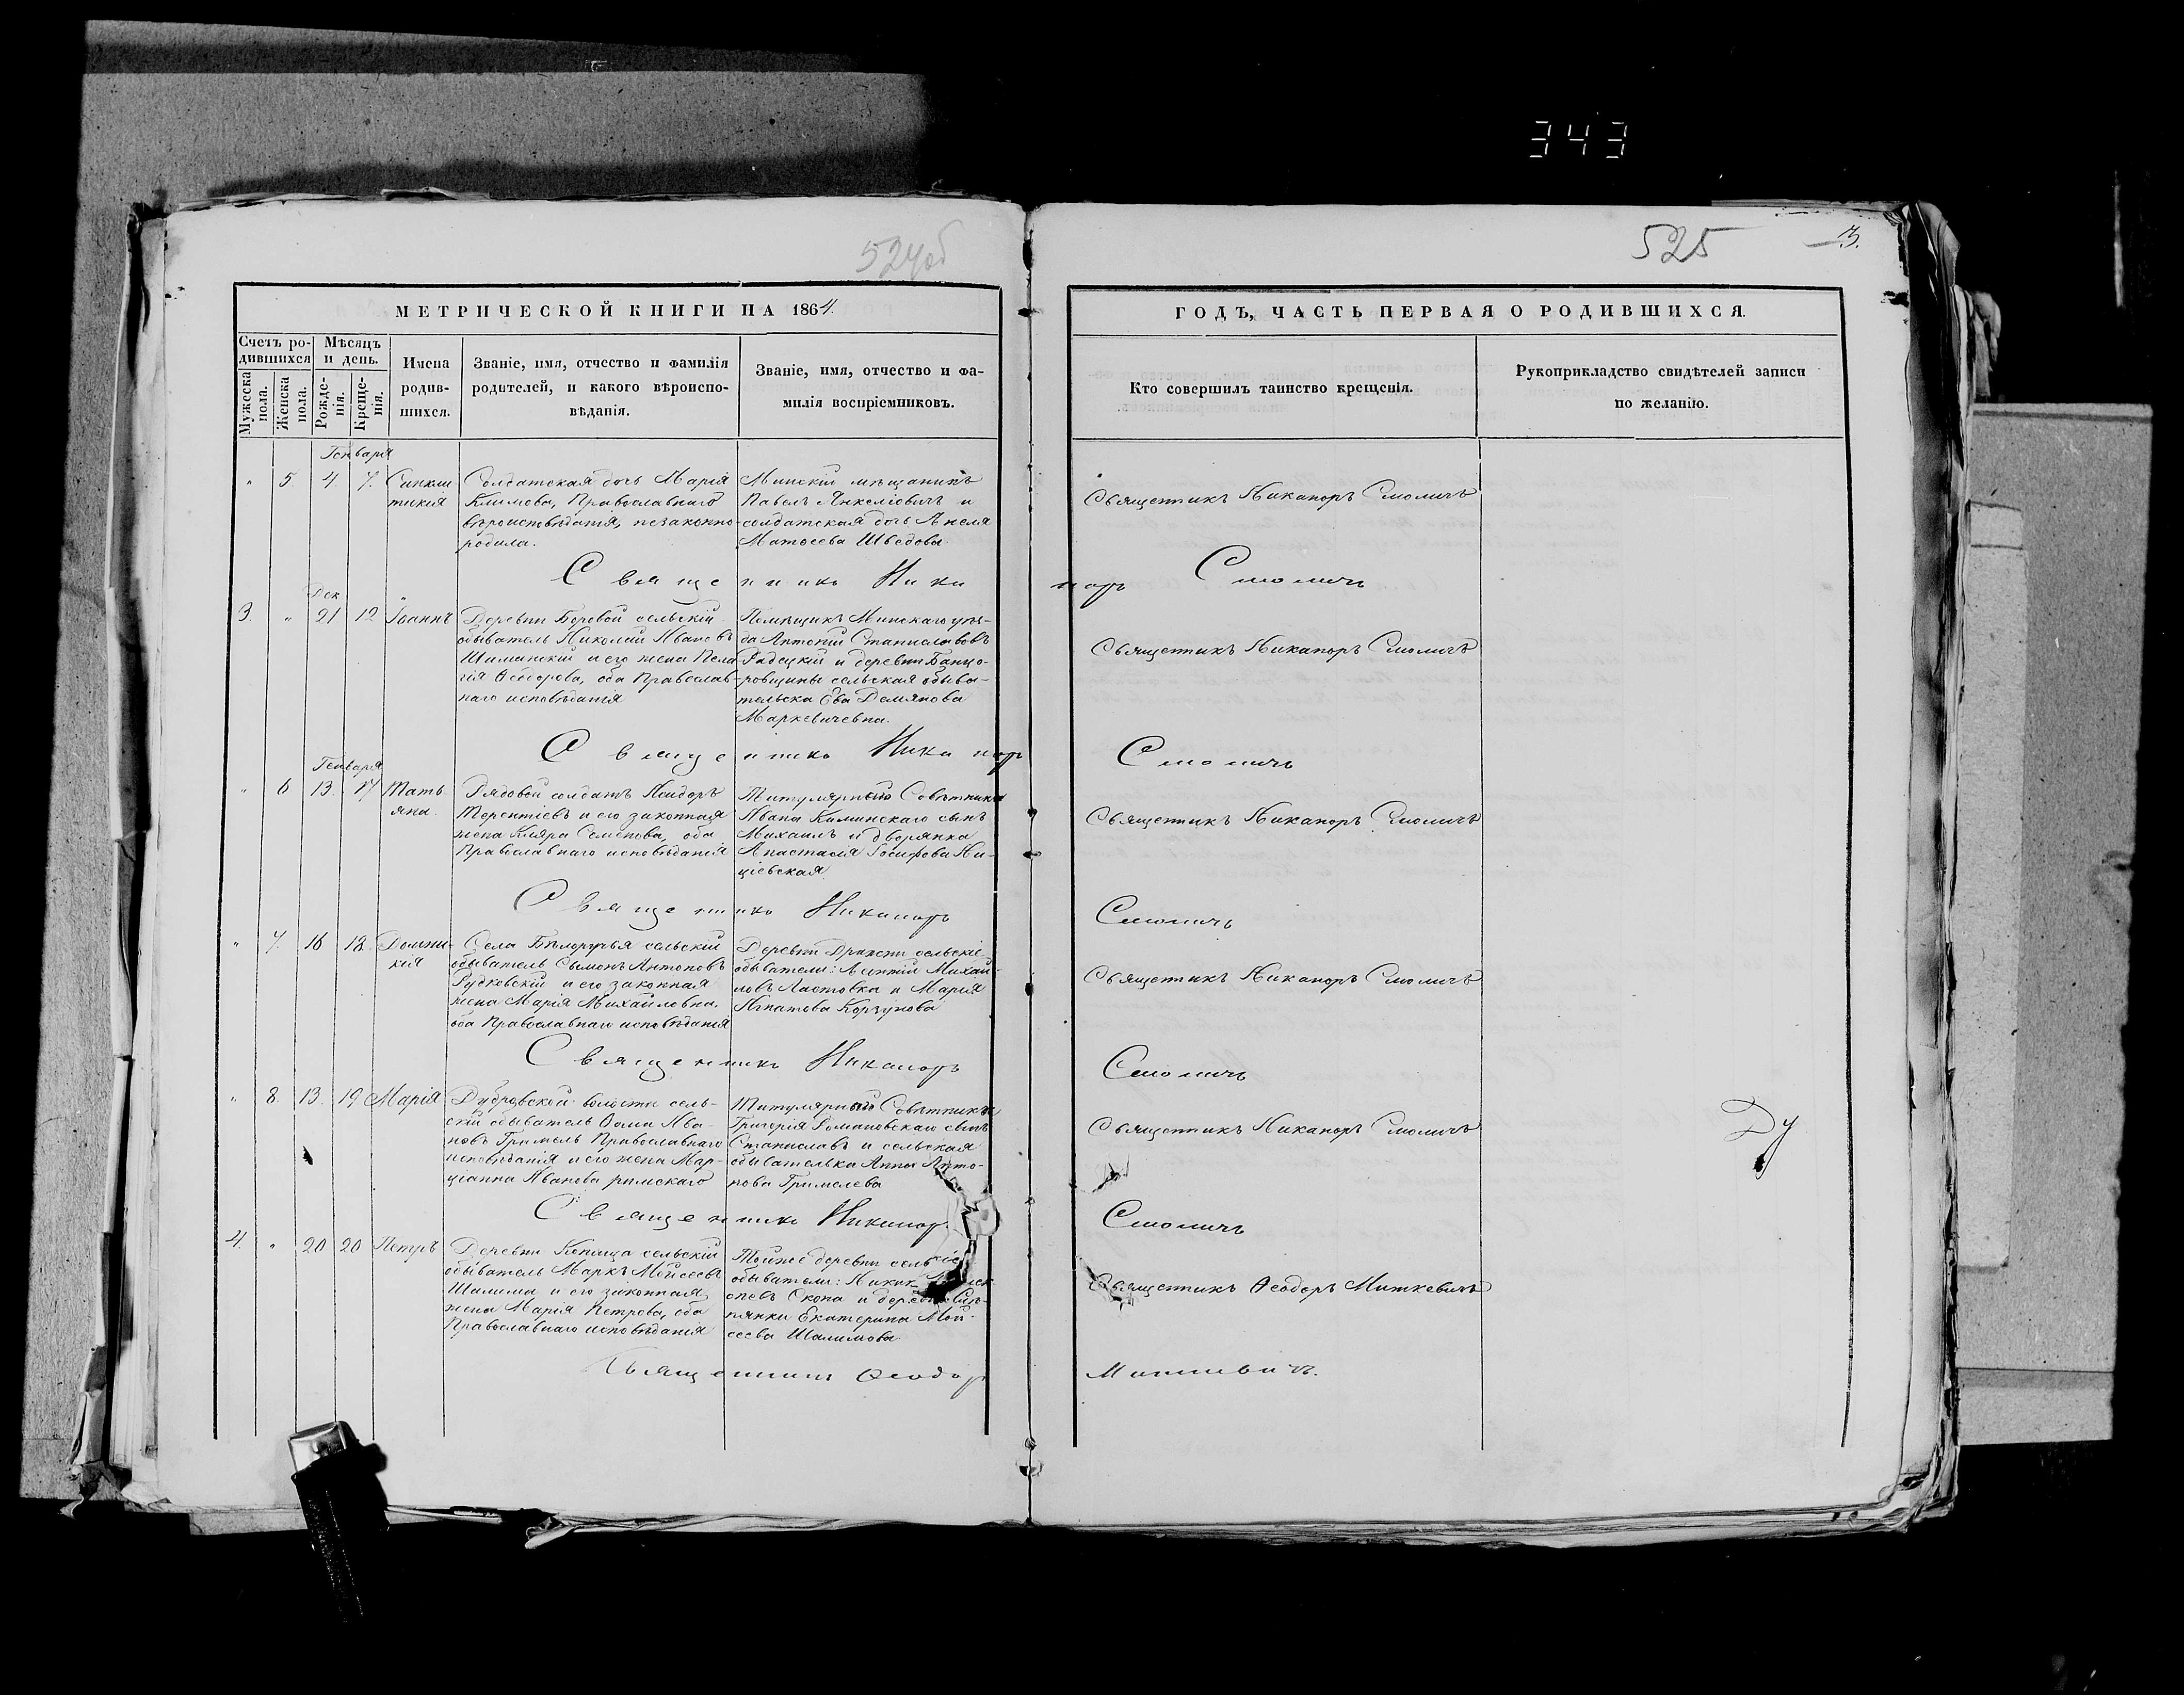 343
524об
525
3.
МЕТРИЧЕСКОЙ КНИГИ НА 1864.
ГОДЪ, ЧАСТЬ ПЕРВАЯ О РОДИВШИХСЯ.
Счетъ ро-
дившихся
Мужеска
пола.
Женска
пола.
Мѣсяцъ
и день.
Рожде-
нія.
Креще-
нія.
Имена
родив-
шихся.
Званіе, имя, отчество и фамилія
родителей, и какого вѣроиспо-
вѣданія.
Званіе, имя, отчество и фа-
милія воспріемниковъ.
Кто совершилъ таинство крещенія.
Рукоприкладство свидѣтелей записи
по желанію.
Генваря
" 5 4 7.
тикія
Солдатская дочь Марія
Климова, Православнаго
вѣроисповѣданія, незаконно
родила.
Минскій мѣщанинъ
Павелъ и
солдатская дочь Анеля
Матвеева Шведова.
Священникъ Никаноръ Смоличъ
Священникъ Никаноръ Смоличъ
Дек
3. " 21 12 Іоаннъ
Деревни Боровой сельскій
обыватель Николай Ивановъ
Шиманскій и его жена Пела
гія Ѳеодорова, оба Православ-
наго исповѣданія
Помѣщикъ Минскаго уѣз-
да Антоній Станиславовъ
Радецкій и деревни Банцо-
ровщины сельская обыва-
телька Ева Демянова
Маркевичевна.
Священникъ Никаноръ Смоличъ
Священникъ Никаноръ Смоличъ
Генваря
" 6 13. 17 Тать
яна.
Рядовой солдатъ Исидоръ
Терентіевъ и его законная
жена Кляра Семенова, оба
Православнаго исповѣданія
Титулярнаго Совѣтника
Ивана Каминскаго сынъ
Михаилъ и дворянка
Анастасія Іосифова Ни-
ціевская.
Священникъ Никаноръ Смоличъ
Священникъ Никаноръ Смоличъ
" 7. 16 18. Домни-
кія
Села Бѣлоручья сельскій
обыватель Сымонъ Антоновъ
Рудковскій и его законная
жена Марія Михайловна,
оба Православнаго исповѣданія
Деревни сельскіе
обыватели: Михай-
ловъ Ластовка и Марія
Игнатова Корзунова
Священникъ Никаноръ Смоличъ
Священникъ Никаноръ Смоличъ
" 8. 13. 19 Марія
Дубровской волости сель-
скій обыватель Ѳома Ива-
новъ Гримель Православнаго
исповѣданія и его жена Мар-
ціанна Иванова римскаго
Титулярнаго Совѣтника
Григорія Романовскаго сынъ
Станиславъ и сельская
обывателька Анна Анто-
нова Гримелева
Священникъ Никаноръ Смоличъ
Священникъ Никаноръ Смоличъ
4. " 20 20 Петръ
Деревни Копища сельскій
обыватель Маркъ Мойсеевъ
Шалима и его законная
жена Марія Петрова, оба
Православнаго исповѣданія
Тойже деревни сельскіе
обыватели:
Скопа и деревни Слѣ-
пянки Екатерина Мой-
сеева Шалимова.
Священникъ Ѳеодоръ Миткевичъ
Священникъ Ѳеодоръ Миткевичъ.